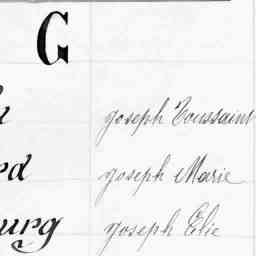 G
joseph Toussaint
ed joseph Marie
urg joseph Elie